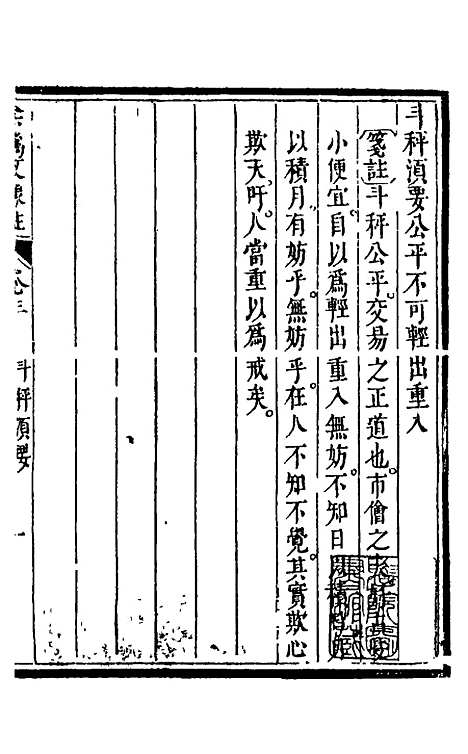 斗秤須要公平不可輕出重入
箋註斗秤公平交易之正道也市儈之
小便宜自以爲輕出重入無妨不知日
以積月有妨乎無妨乎在人不知不覺其實欺心
欺天吁人當重以爲戒矣
斗秤須要
一